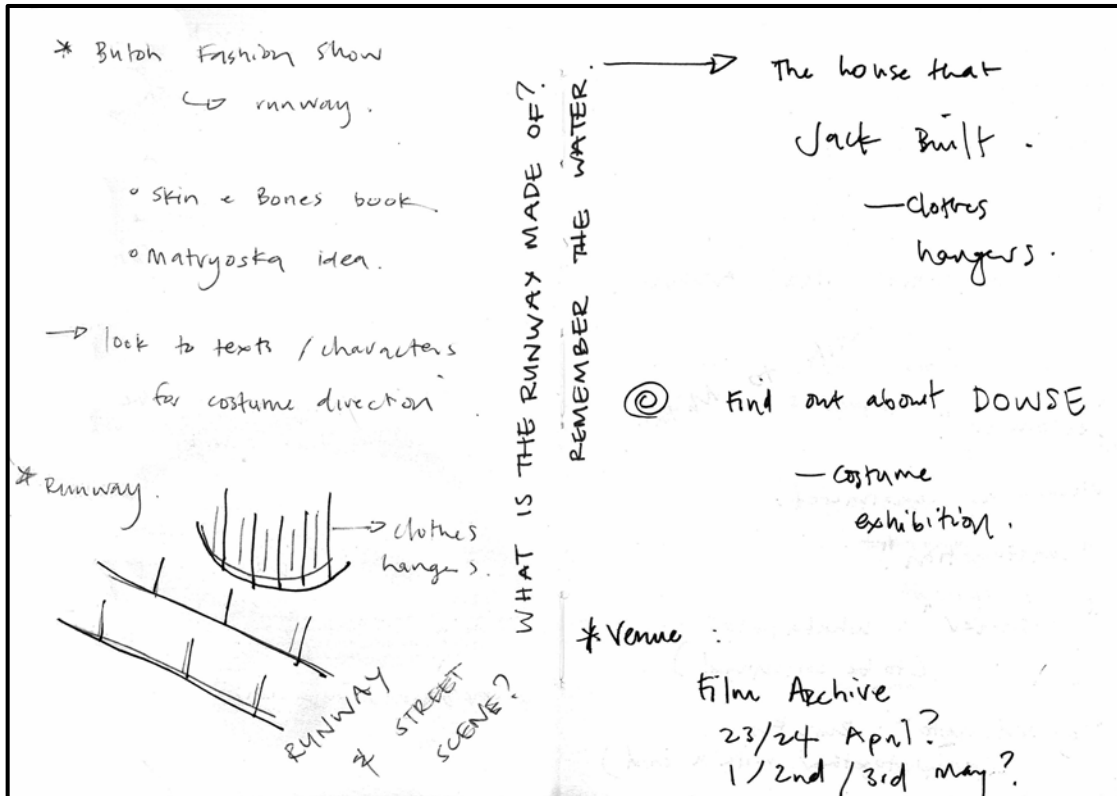 * Butoh Fashion Show
↳ runway.
• Skin & Bones book
• Matryoska idea.
→ look to texts / characters
for costume direction.
* Runway.
→ clothes
hangers.
RUNWAY
& STREET
SCENE?
WHAT IS THE RUNWAY MADE OF?
REMEMBER THE WATER.
→ The house that
Jack Built.
— clothes
hangers.
Find out about DOWSE
— costume
exhibition.
* Venue :
Film Archive
23/24 April?
1/2nd/3rd May?